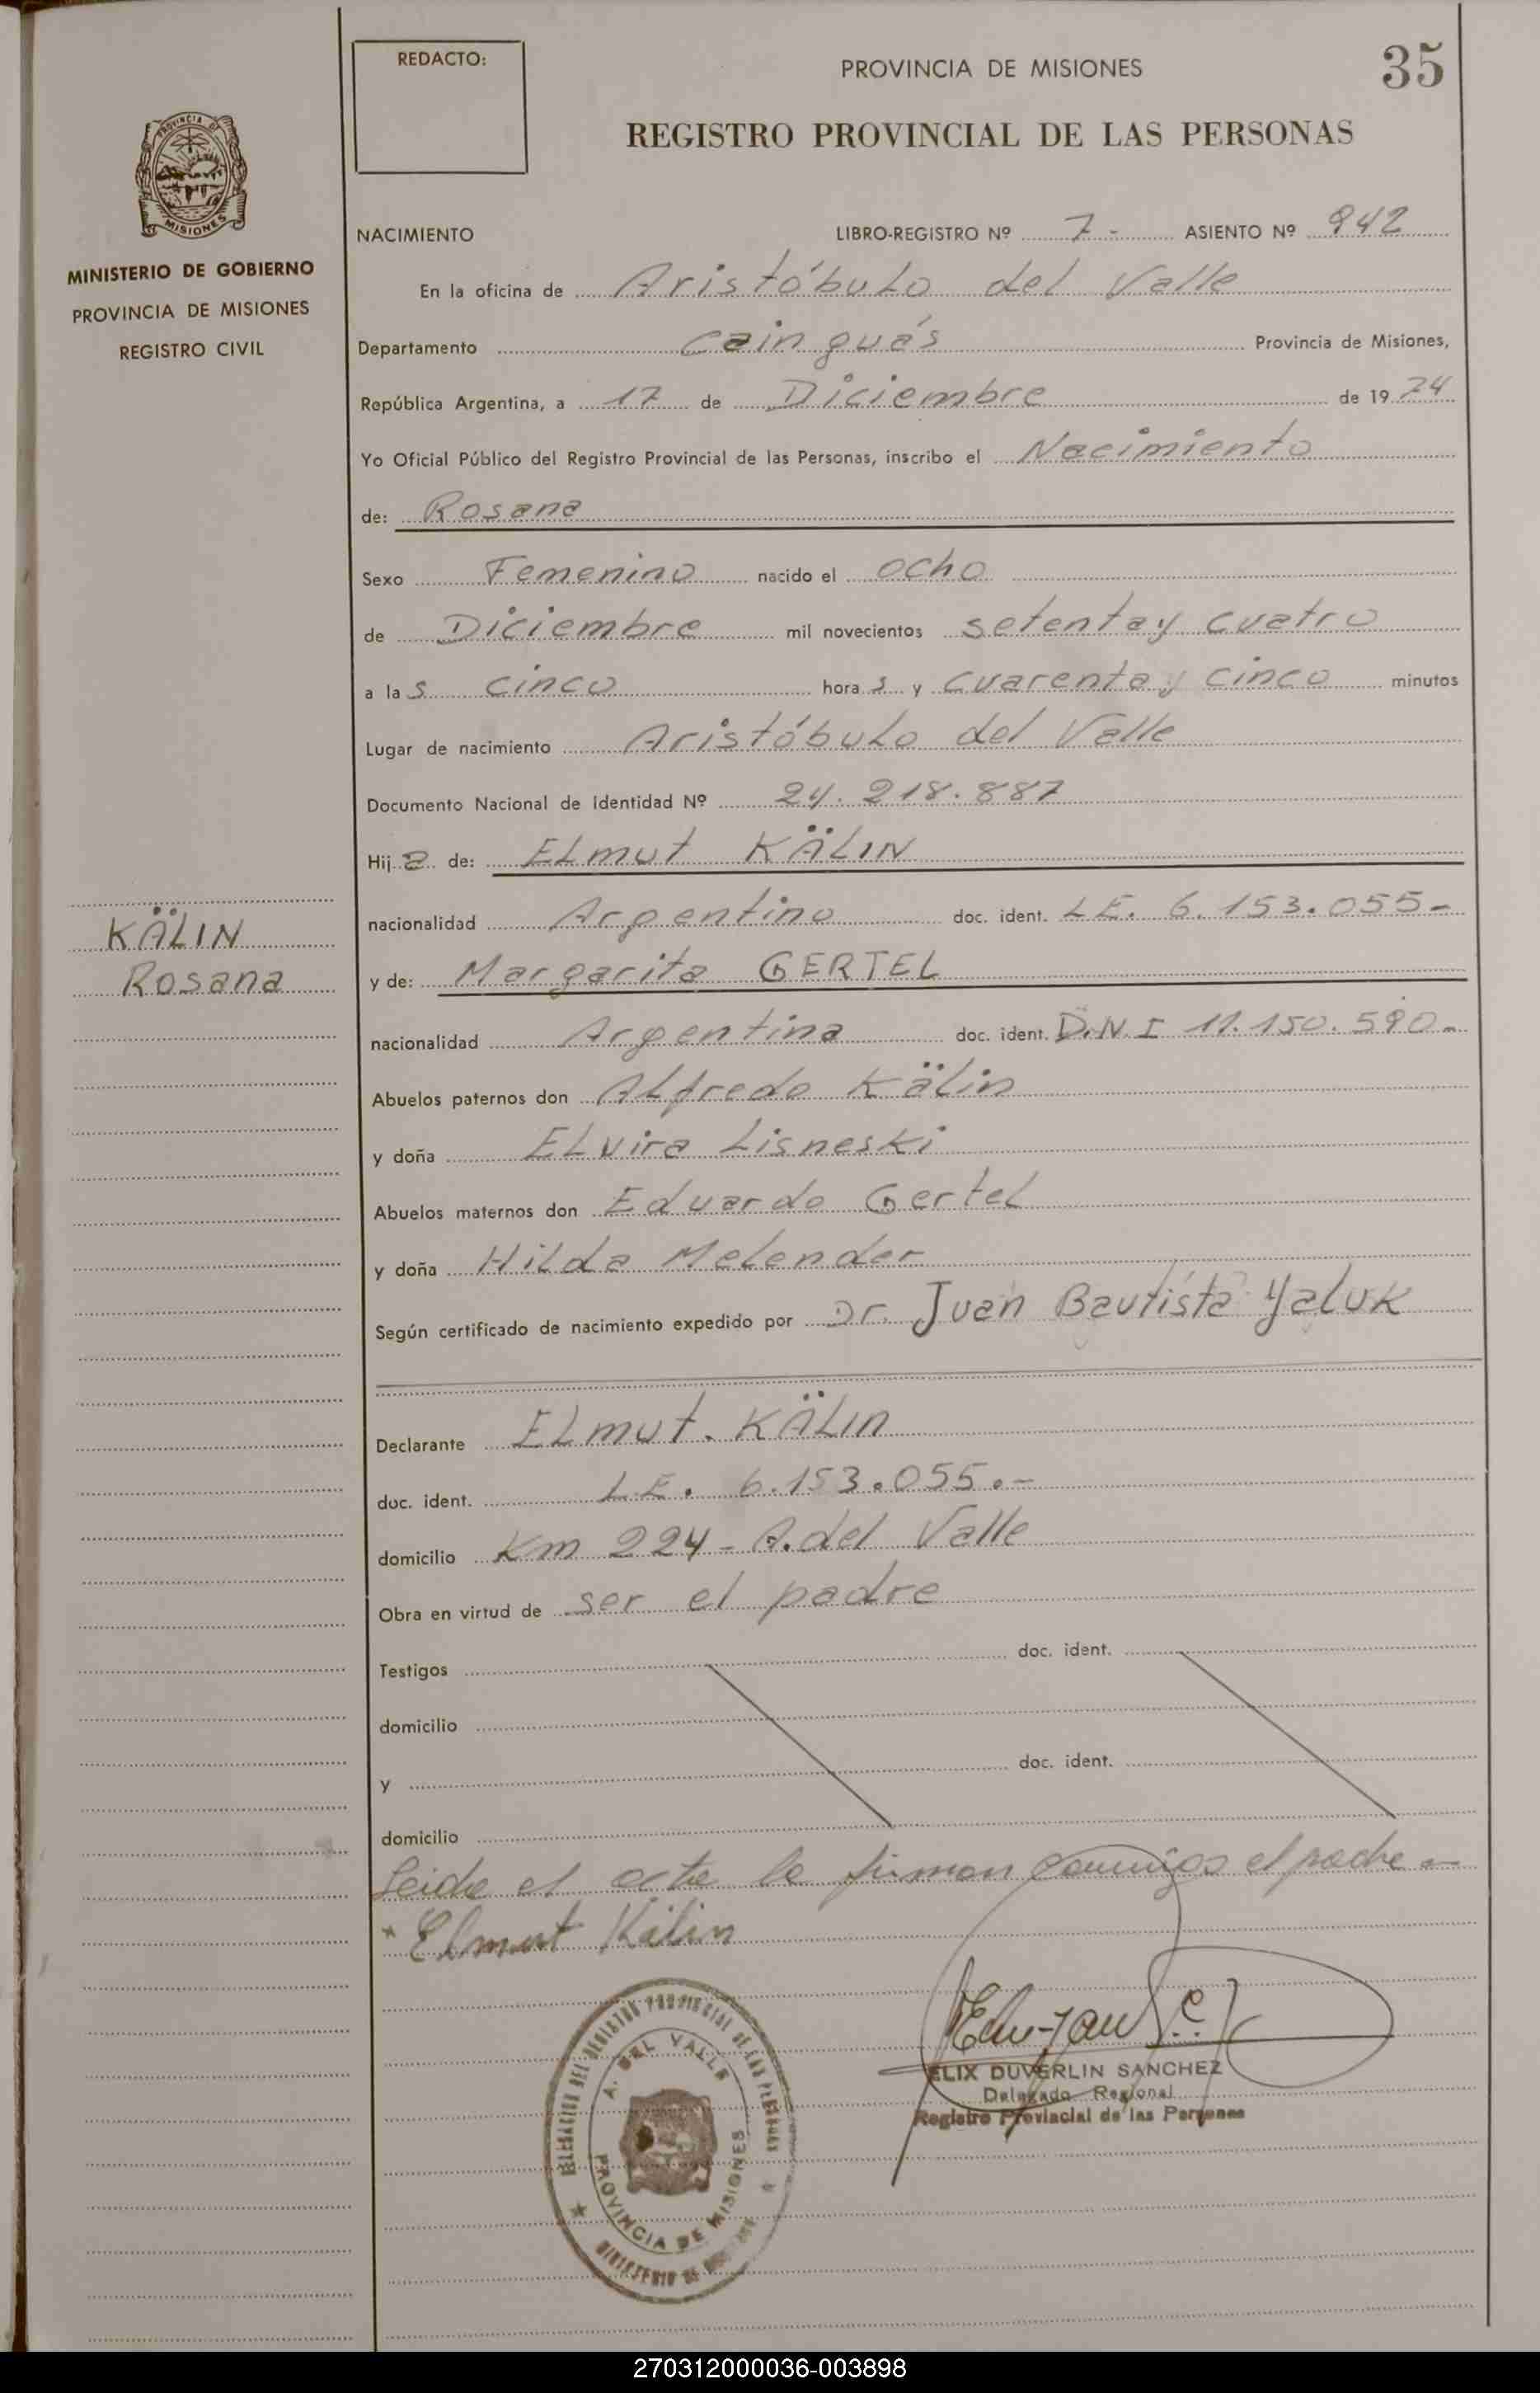 35
REDACTO:
PROVINCIA DE MISIONES
REGISTRO PROVINCIAL DE LAS PERSONAS
PROVINCIA DE
MISIONES
MINISTERIO DE GOBIERNO
PROVINCIA DE MISIONES
REGISTRO CIVIL
NACIMIENTO LIBRO-REGISTRO Nº 7- ASIENTO Nº 942
En la oficina de Aristóbulo del Valle
Departamento Cainguás Provincia de Misiones,
República Argentina, a 17 de Diciembre de 19 74
Yo Oficial Público del Registro Provincial de las Personas, inscribo el Nacimiento
de: Rosana
Sexo Femenino nacido el ocho
de Diciembre mil novecientos setenta y cuatro
a las cinco horas y cuarenta y cinco minutos
Lugar de nacimiento Aristóbulo del Valle
Documento Nacional de Identidad Nº 24.218.887
Hija de: Elmut KÄLIN
nacionalidad Argentino doc. ident. L.E. 6.153.055-
KÄLIN
Rosana
y de: Margarita GERTEL
nacionalidad Argentina doc. ident. D.N.I 11.150.590-
Abuelos paternos don Alfredo Kälin
y doña Elvira Lisneski
Abuelos maternos don Eduardo Gertel
y doña Hilda Melender
Según certificado de nacimiento expedido por Dr. Juan Bautista Yaluk
Declarante Elmut. KÄLIN
doc. ident. L.E. 6.153.055.-
domicilio Km 224 - A. del Valle
Obra en virtud de ser el padre
Testigos doc. ident.
domicilio
y doc. ident.
domicilio
Leida el acta la firman conmigo el padre -
Elmut Kälin
ELIX DUVERLIN SANCHEZ
Delegado Regional
Registro Provincial de las Personas
DELEGACION DEL REGISTRO PROVINCIAL DE LAS PERSONAS
A. DEL VALLE
PROVINCIA DE MISIONES
MINISTERIO DE
270312000036-003898